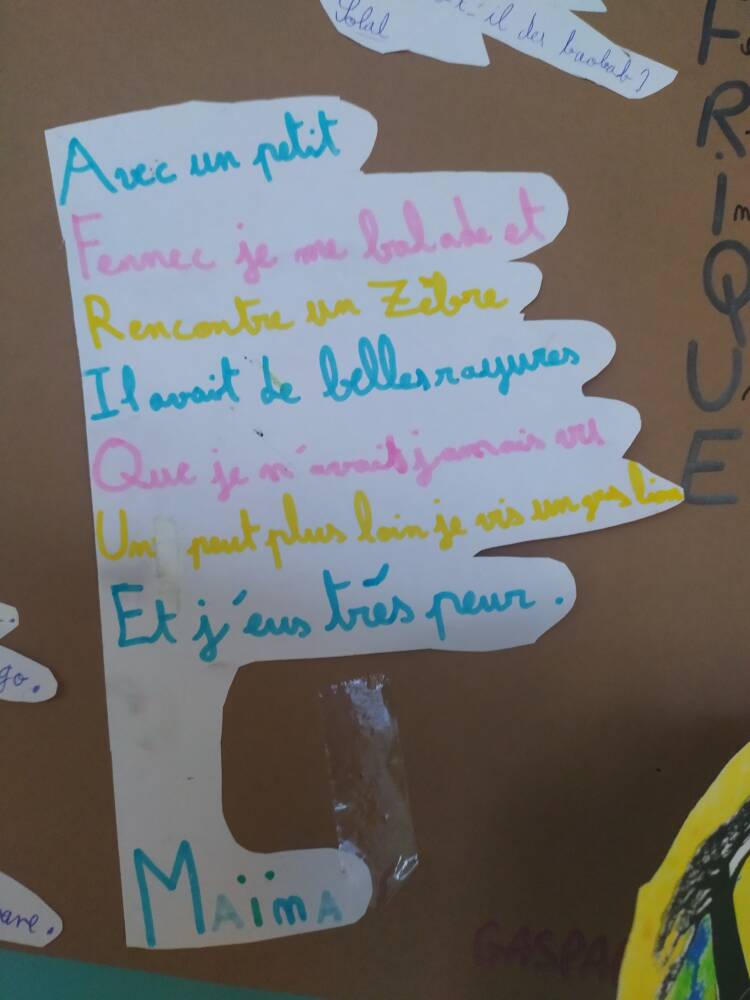 Solal
il des baobab?
F
R
I
Q
U
E
Avec un petit
Fennec je me balade et
Rencontre un Zèbre
Il avait de belles rayures
Que je n'avait jamais vu
Un peut plus loin je vis un gros lion
Et j'eus trés peur.
go.
Maïma
GASPA